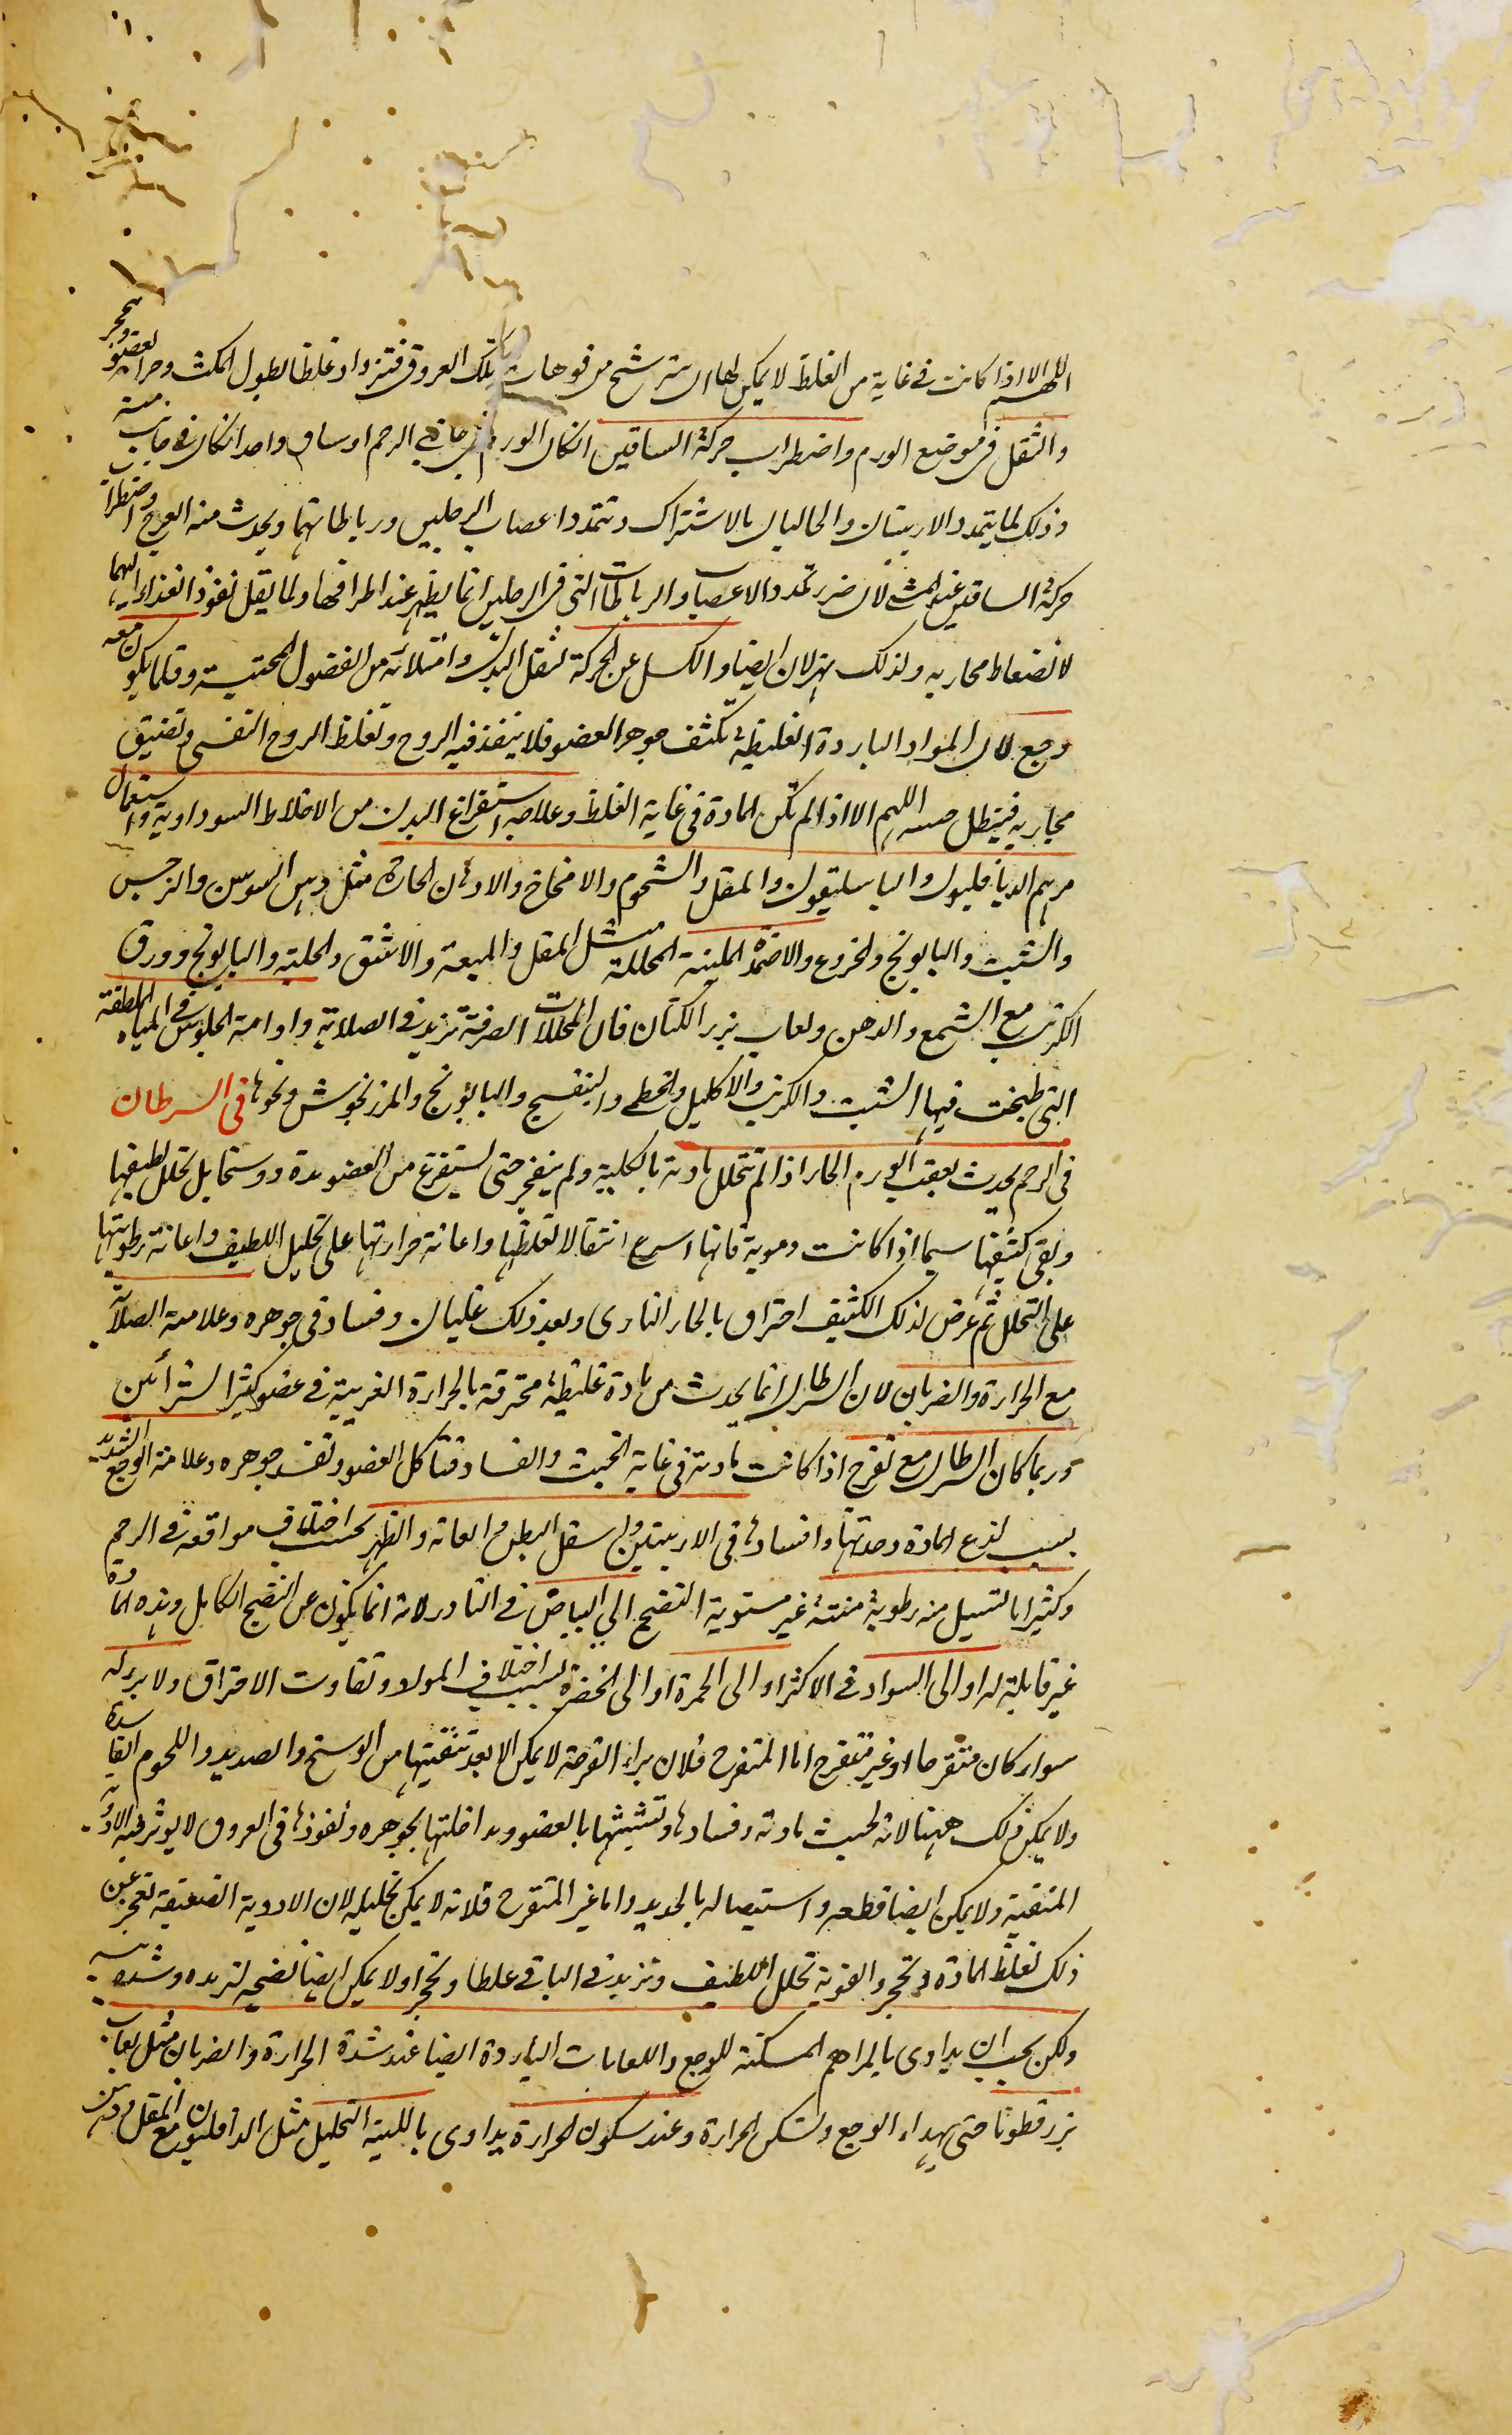 اللهم الا اذا كانت فى غاية من الغلظ لا يمكن لها ان تترشح من فوهات تلك العروق فتزداد غلظا لطول المكث وحرالعضو وتحجر
والثقل فى موضع الورم واضطراب حركة الساقين ان كان الورم فى جانبى الرحم او ساق واحد ان كان فى جانب منه
وذلك لما يتمدد الاربيتان والحالبان بالاشتراك وتتمدد اعصاب الرجلين ورباطاتهما ويحدث منه العرج واضطراب
حركة الساقين عند المشى لان ضرر تمدد الاعصاب والرباطات التى فى الرجلين انما يظهر عند اطرافها ولما يقل نفوذ الغذاء اليهما
لانضغاط مجاريه ولذلك يهزلان ايضا والكسل عن الحركة لثقل البدن وامتلائه من الفضول المحتبسة وقلما يكون معه
وجع لان المواد الباردة الغليظة تكثف جوهر العضو فلا ينفذ فيه الروح وتغلظ الروح النفسى وتضيق
مجاريه فيبطل حسه اللهم الا اذا لم تكن المادة فى غاية الغلظ وعلاجه استفراغ البدن من الاخلاط السوداوية واستعمال
مرهم الدياخليون والباسليقون والمقل والشحوم والامخاخ والادهان الحارة مثل دهن السوسن والنرجس
والشبت والبابونج والخروع والاضمدة الملينة المحللة مثل المقل والميعة والاشق والحلبة والبابونج وورق
الكرنب مع الشمع والدهن ولعاب بزر الكتان فان المحللات الصرفة تزيد فى الصلابة وادامة الجلوس فى المياه الملطفة
التى طبخت فيها الشبت والكرنب والاكليل والخطمى والبنفسج والبابونج والمرزنجوش ونحوها فى السرطان
فى الرحم يحدث بعقب الورم الحار اذا لم تتحلل مادته بالكلية ولم ينفجر حتى يستفرغ من العضو مدة ووسخا بل تحلل لطيفها
وبقى كثيفها سيما اذا كانت دموية فانها اسرع انتقالا لغلظها واعانة حرارتها على تحليل اللطيف واعانة رطوبتها
على التحلل ثم عرض لذلك الكثيف احتراق بالحار النارى وبعد ذلك غليان وفساد فى جوهره وعلامته الصلابة
مع الحرارة والضربان لان السرطان انما يحدث من مادة غليظة محترقة بالحرارة الغريبة فى عضو كثير الشرائين
وربما كان السرطان مع تقرح اذا كانت مادته فى غاية الخبث والفساد فتأكل العضو وتفسد جوهره وعلامته الوجع الشديد
بسبب لذع المادة وحدتها وافسادها فى الاربيتين واسفل البطن والعانة والظهر بحسب اختلاف مواقعه فى الرحم
وكثيرا ما تسيل منه رطوبة منتنة غير مستوية النضج الى البياض فى النادر لانه انما يكون عن النضج الكامل وهذه المادة
غير قابلة له او الى السواد فى الاكثر او الى الحمرة او الى الخضرة بسبب اختلاف المواد وتفاوت الاحتراق ولا برء له
سواء كان متقرحا او غير متقرح اما المتقرح فلان براء القرحة لا يمكن الا بعد تنقيتها من الوسخ والصديد واللحوم الفاسدة
ولا يمكن ذلك ههنا لانه لخبث مادته وفسادها وتشبثها بالعضو ومداخلتها بجوهره ونفوذها فى العروق لا يؤثر فيه الادوية
المنقية ولا يمكن ايضا قطعه واستيصاله بالحديد واما غير المتقرح فلانه لا يمكن تحليله لان الادوية الضعيفة تعجز عن
ذلك لغلظ المادة وتحجر والقوية تحلل اللطيف وتزيد فى الباقى غلظا وتحجرا ولا يمكن ايضا نضجه لتمرده وشدة يبسه
ولكن يجب ان يداوى بالمراهم المسكنة للوجع واللعابات الباردة ايضا عند شدة الحرارة والضربان مثل لعاب
بزر قطونا حتى يهداء الوجع وتسكن الحرارة وعند سكون الحرارة يداوى باللينة التحليل مثل الداخليون مع المقل ودهن